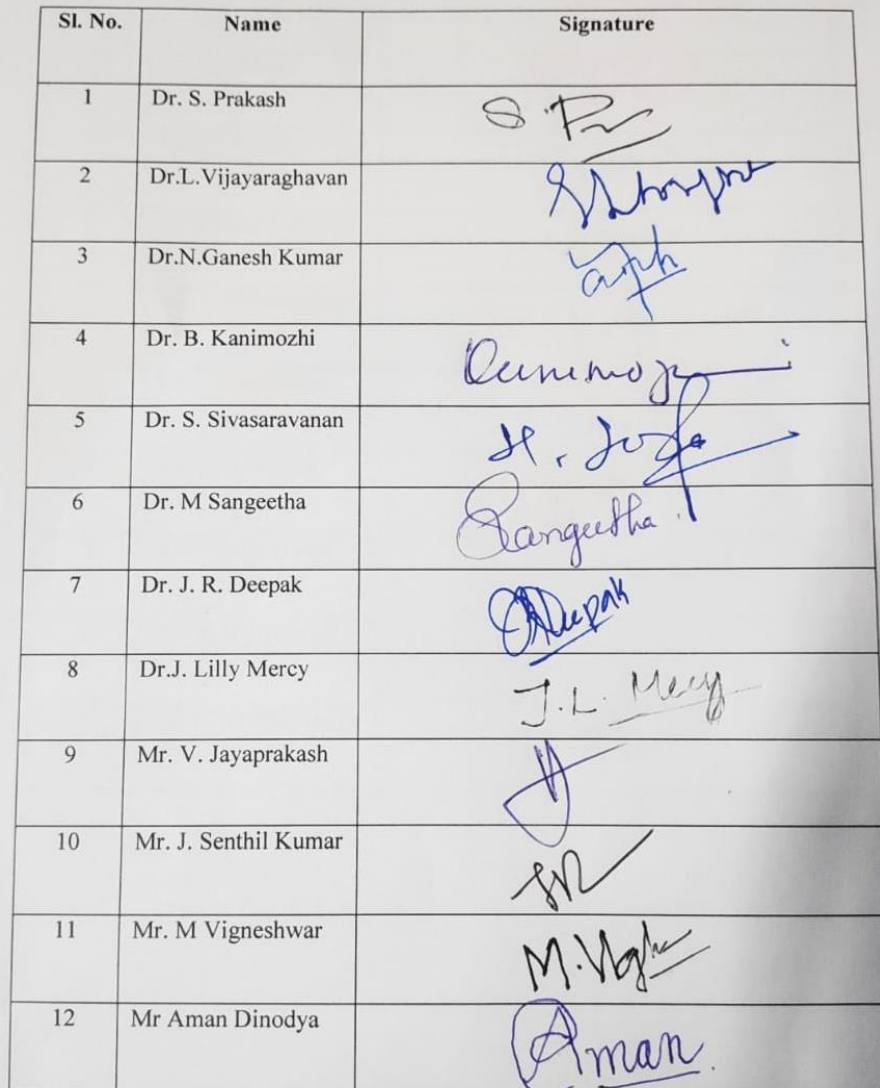 Sl. No. Name Signature
1 Dr. S. Prakash S.
2 Dr.L.Vijayaraghavan
3 Dr.N.Ganesh Kumar
4 Dr. B. Kanimozhi
5 Dr. S. Sivasaravanan
6 Dr. M Sangeetha Sangeetha
7 Dr. J. R. Deepak Deepak
8 Dr.J. Lilly Mercy J.L. Mercy
9 Mr. V. Jayaprakash
10 Mr. J. Senthil Kumar
11 Mr. M Vigneshwar M.
12 Mr Aman Dinodya Aman